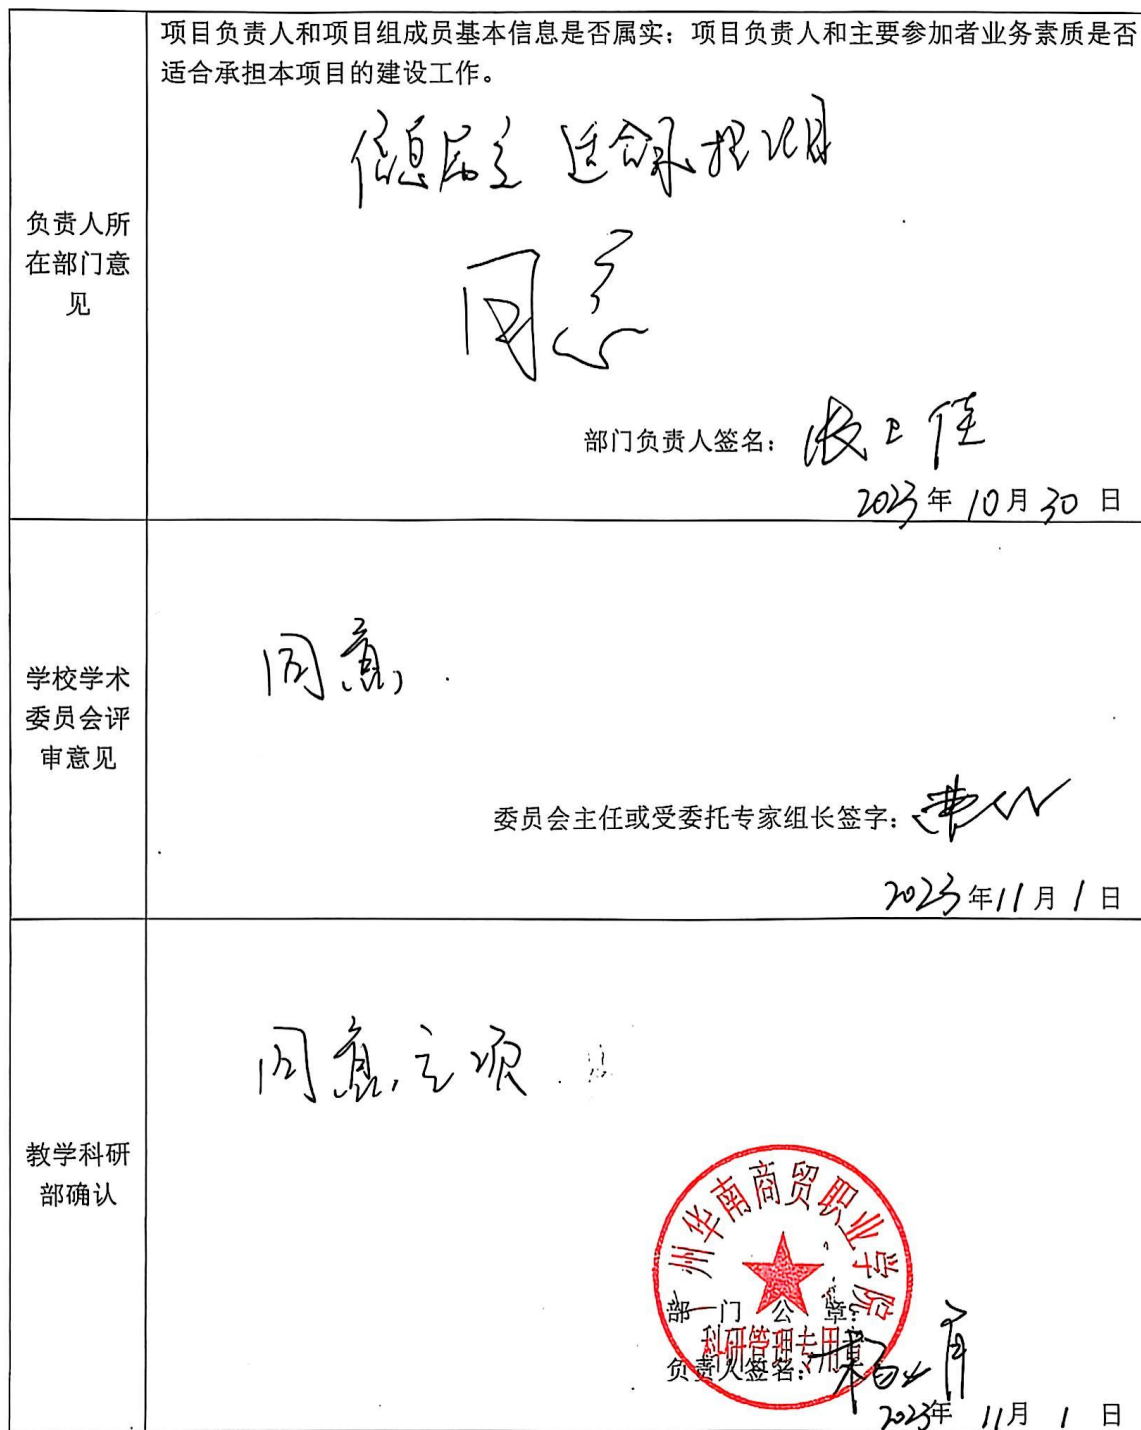 项目负责人和项目组成员基本信息是否属实；项目负责人和主要参加者业务素质是否
适合承担本项目的建设工作。
负责人所
在部门意
见
信息属实 适合承担项目
同意
部门负责人签名：
2023年 10月 30 日
学校学术
委员会评
审意见
同意
委员会主任或受委托专家组长签字：
2023年11月1日
教学科研
部确认
同意立项
广州华南商贸职业学院
科研管理专用章
部门公章：
负责人签名：
2023年 11月 1 日